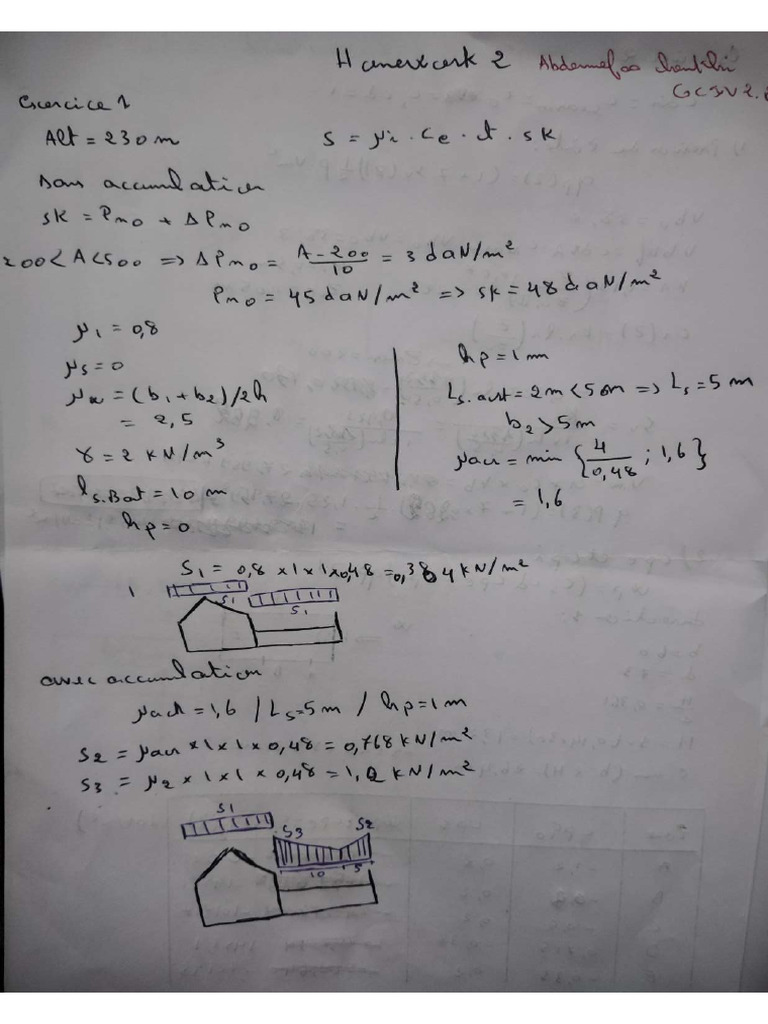 Homework 2 Abdennefaa
GCIV2.
Exercice 1
Alt = 230 m S = μi . Ce . t . sk
sans accumulation
sk = Pno + ΔPno
200 < A < 500 => ΔPno = A - 200 / 10 = 3 daN/m²
Pno = 45 daN/m² => sk = 48 daN/m²
μ1 = 0,8
μs = 0
μw = (b1 + b2)/2h
= 2,5
γ = 2 KN/m³
ls.Bat = 10 m
hp = 0
hp = 1 m
Ls.acrt = 2m < 5m => Ls = 5 m
b2 > 5m
μacr = min { 4 / 0,48 ; 1,6 }
= 1,6
S1 = 0,8 x 1 x 1 x 0,48 = 0,384 KN/m²
1
S1
S1
avec accumulation
μacr = 1,6 / Ls = 5 m / hp = 1 m
S2 = μacr x 1 x 1 x 0,48 = 0,768 KN/m²
S3 = μ2 x 1 x 1 x 0,48 = 1,2 KN/m²
S1
S3 S2
10 5